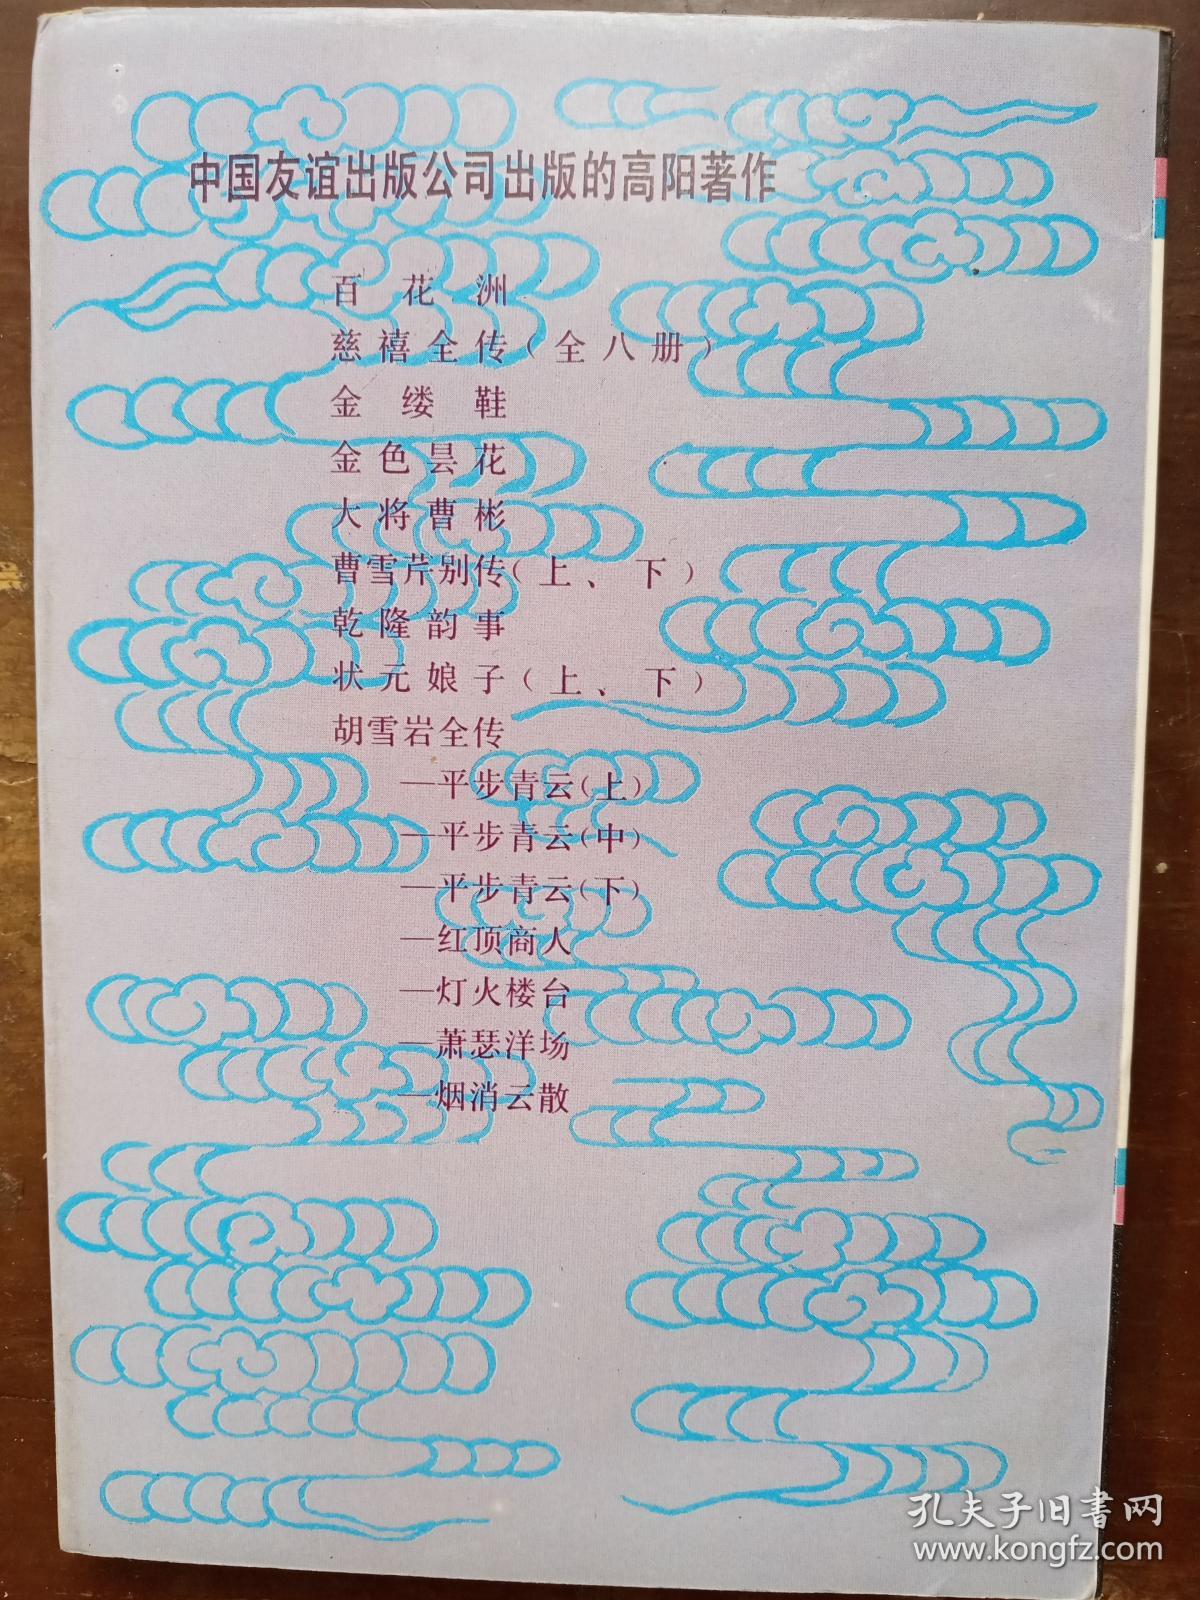 中国友谊出版公司出版的高阳著作
百花洲
慈禧全传（全八册）
金缕鞋
金色昙花
大将曹彬
曹雪芹别传（上、下）
乾隆韵事
状元娘子（上、下）
胡雪岩全传
—平步青云（上）
—平步青云（中）
—平步青云（下）
—红顶商人
—灯火楼台
—萧瑟洋场
—烟消云散
孔夫子旧书网
www.kongfz.com